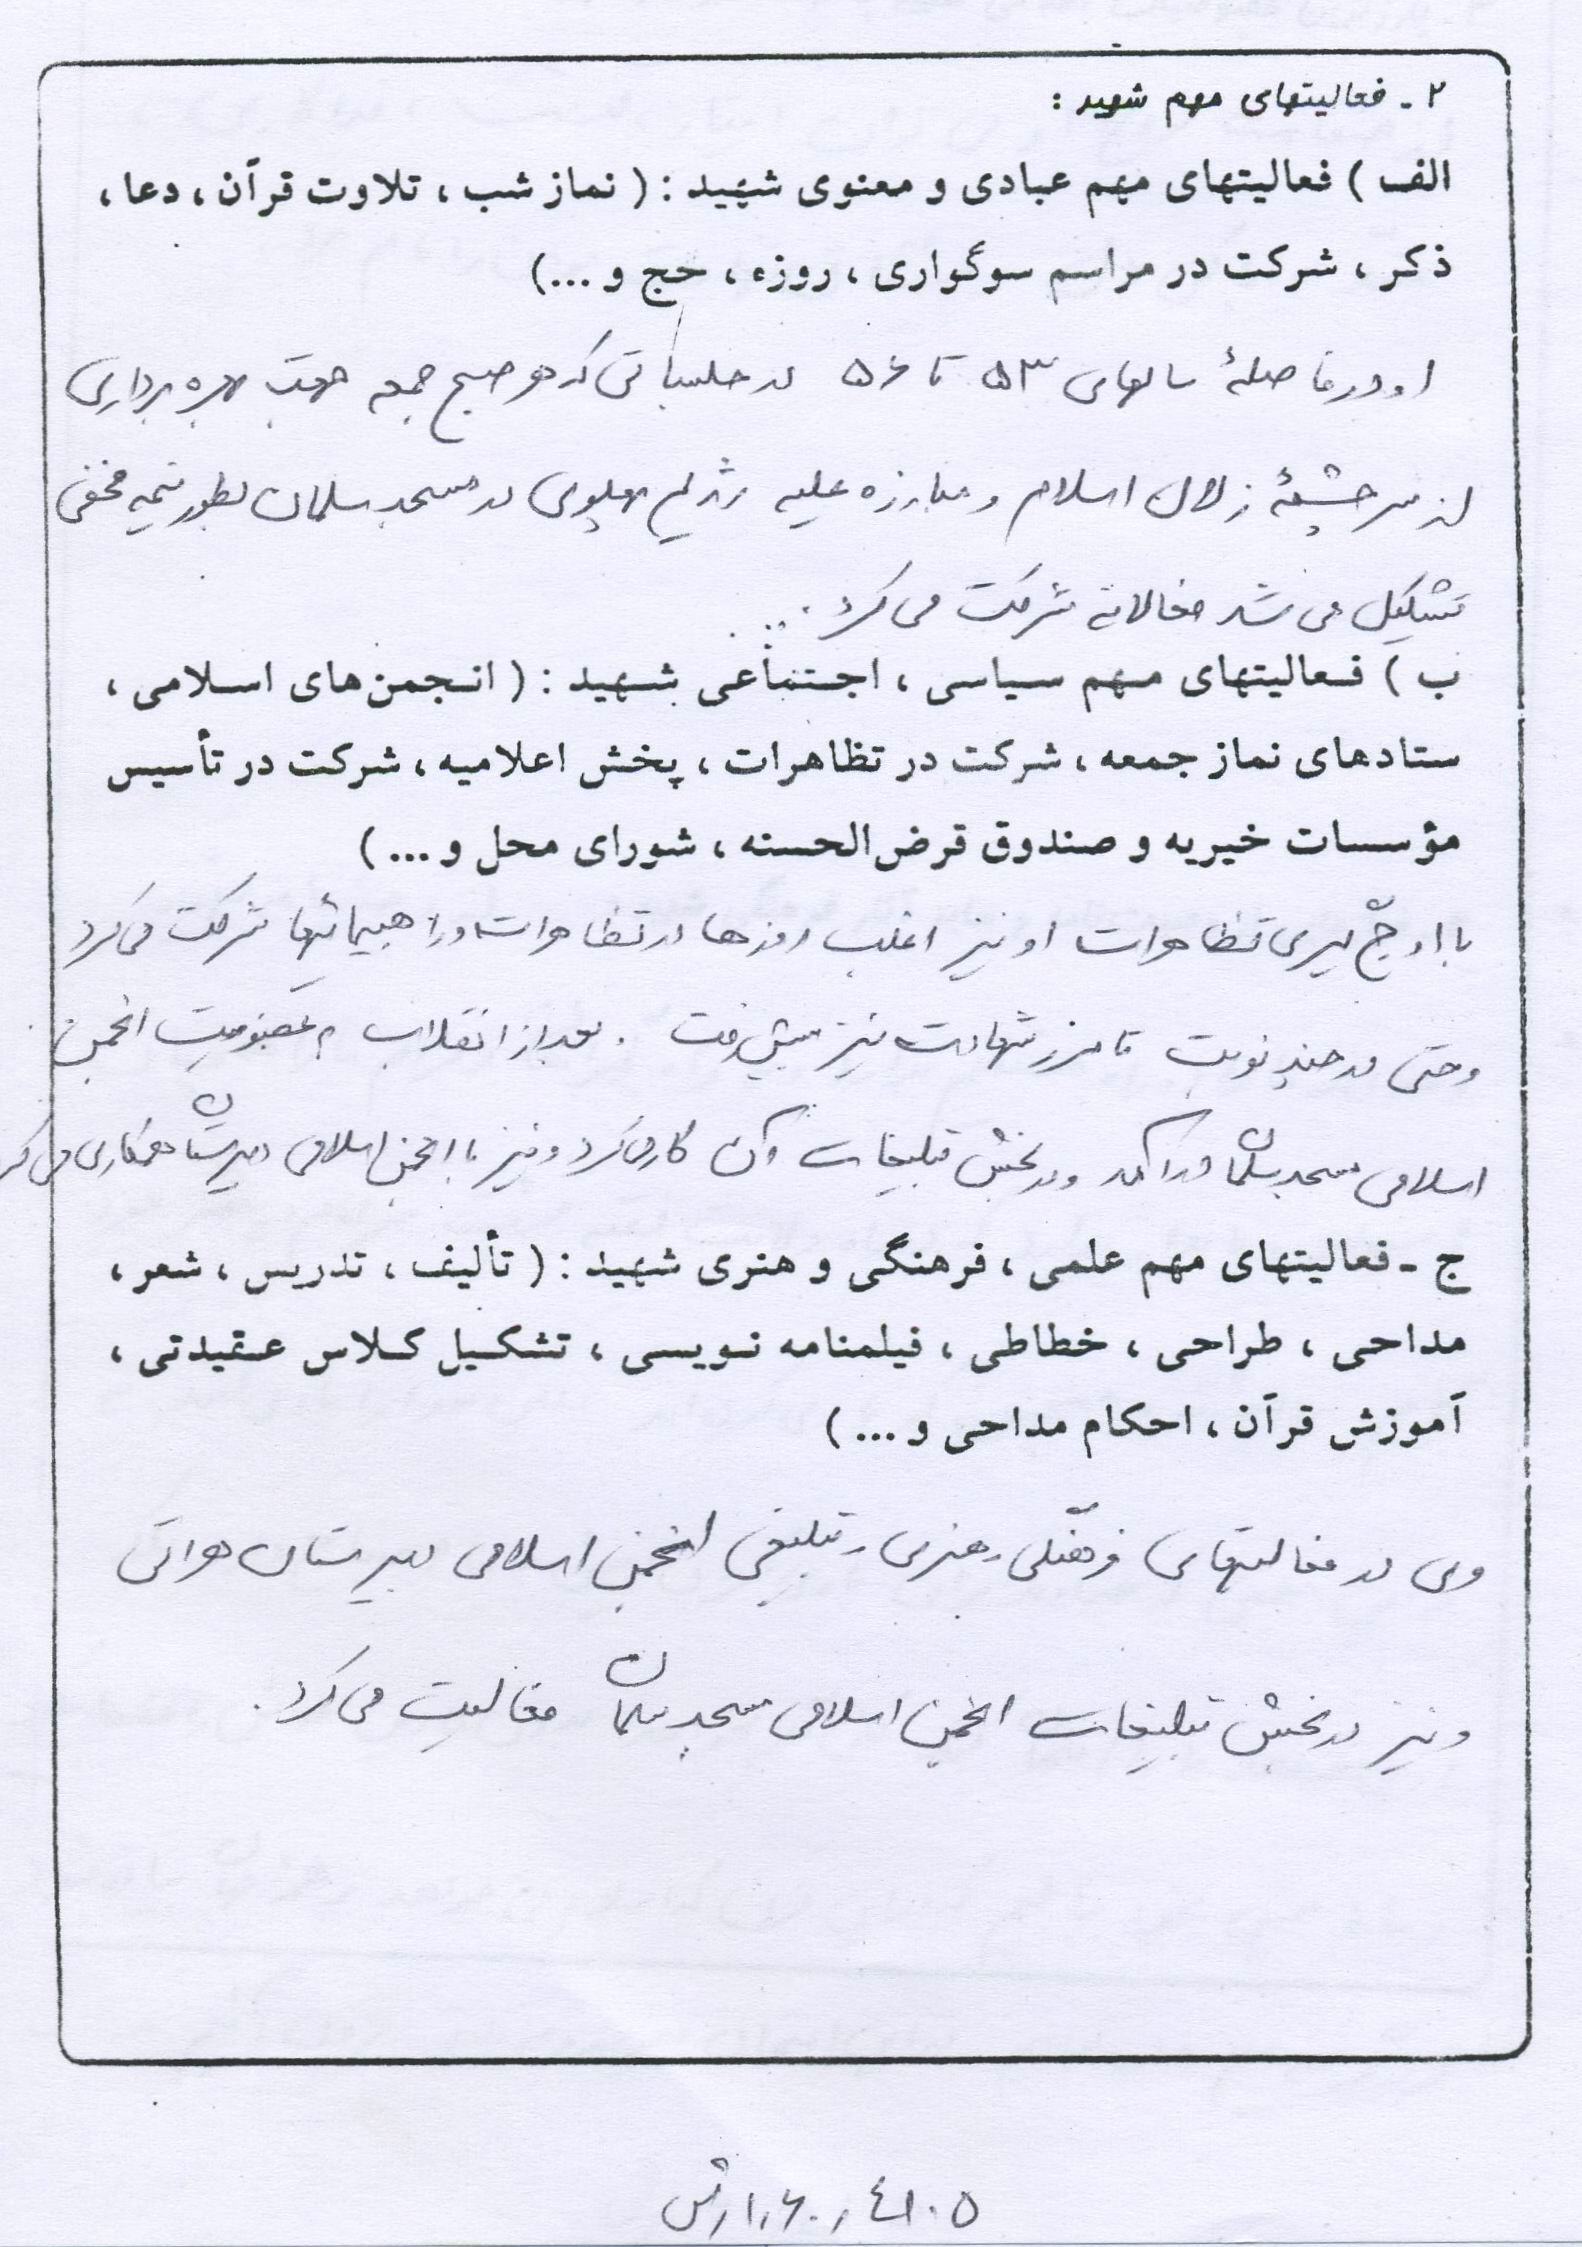 ۲ - فعالیتهای مهم شهید :
الف ) فعالیتهای مهم عبادی و معنوی شهید : ( نماز شب ، تلاوت قرآن ، دعا ،
ذکر ، شرکت در مراسم سوگواری ، روزه ، حج و ...)
او در فاصلهٔ سالهای ۵۳ تا ۵۶ در جلساتی که هر صبح جمعه جهت بهره برداری
از سرچشمهٔ زلال اسلام و مبارزه علیه رژیم پهلوی در مسجد سلمان بطور نیمه مخفی
تشکیل می شد فعالانه شرکت می کرد ...
ب ) فعالیتهای مهم سیاسی ، اجتماعی شهید : ( انجمن‌های اسلامی ،
ستادهای نماز جمعه ، شرکت در تظاهرات ، پخش اعلامیه ، شرکت در تأسیس
مؤسسات خیریه و صندوق قرض‌الحسنه ، شورای محل و ... )
با اوج گیری تظاهرات او نیز اغلب روزها در تظاهرات و راهپیمائیها شرکت می کرد
و حتی در چند نوبت تا مرز شهادت نیز پیش رفت . بعد از انقلاب به عضویت انجمن
اسلامی مسجد سلمان در آمد و در بخش تبلیغات آن کار می کرد و نیز با انجمن اسلامی دبیرستان همکاری می کرد
ج - فعالیتهای مهم علمی ، فرهنگی و هنری شهید : ( تألیف ، تدریس ، شعر ،
مداحی ، طراحی ، خطاطی ، فیلمنامه نویسی ، تشکیل کلاس عقیدتی ،
آموزش قرآن ، احکام مداحی و ... )
وی در فعالیتهای فرهنگی هنری و تبلیغی انجمن اسلامی دبیرستان هراتی
و نیز در بخش تبلیغات انجمن اسلامی مسجد سلمان فعالیت می کرد .